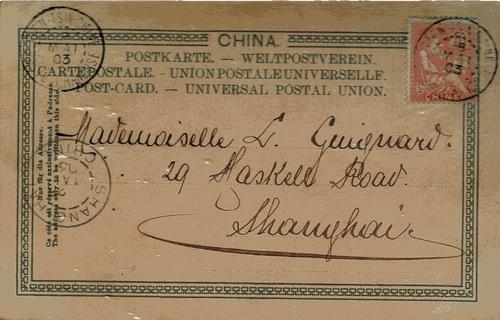 CHINA.
POSTKARTE. — WELTPOSTVEREIN.
CARTE POSTALE. - UNION POSTALE UNIVERSELLE.
POST-CARD. — UNIVERSAL POSTAL UNION.
Nur für die Adresse.
Ce côté est réservé exclusivement à l'adresse.
The address only to be written on this side.
CHINE
03
CHINE
03
CHINE
SHANG
CHINE
Mademoiselle L. Guignard.
29 Haskell Road.
Shanghai